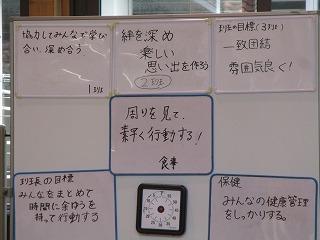 協力してみんなで学び
合い、深め合う
1班
絆を深め
楽しい
思い出を作ろう
2班
班の目標(3班)
一致団結
雰囲気良く!
周りを見て、
素早く行動する!
食事
班長の目標
みんなをまとめて
時間に余ゆうを
持って行動する
保健
みんなの健康管理
をしっかりする。